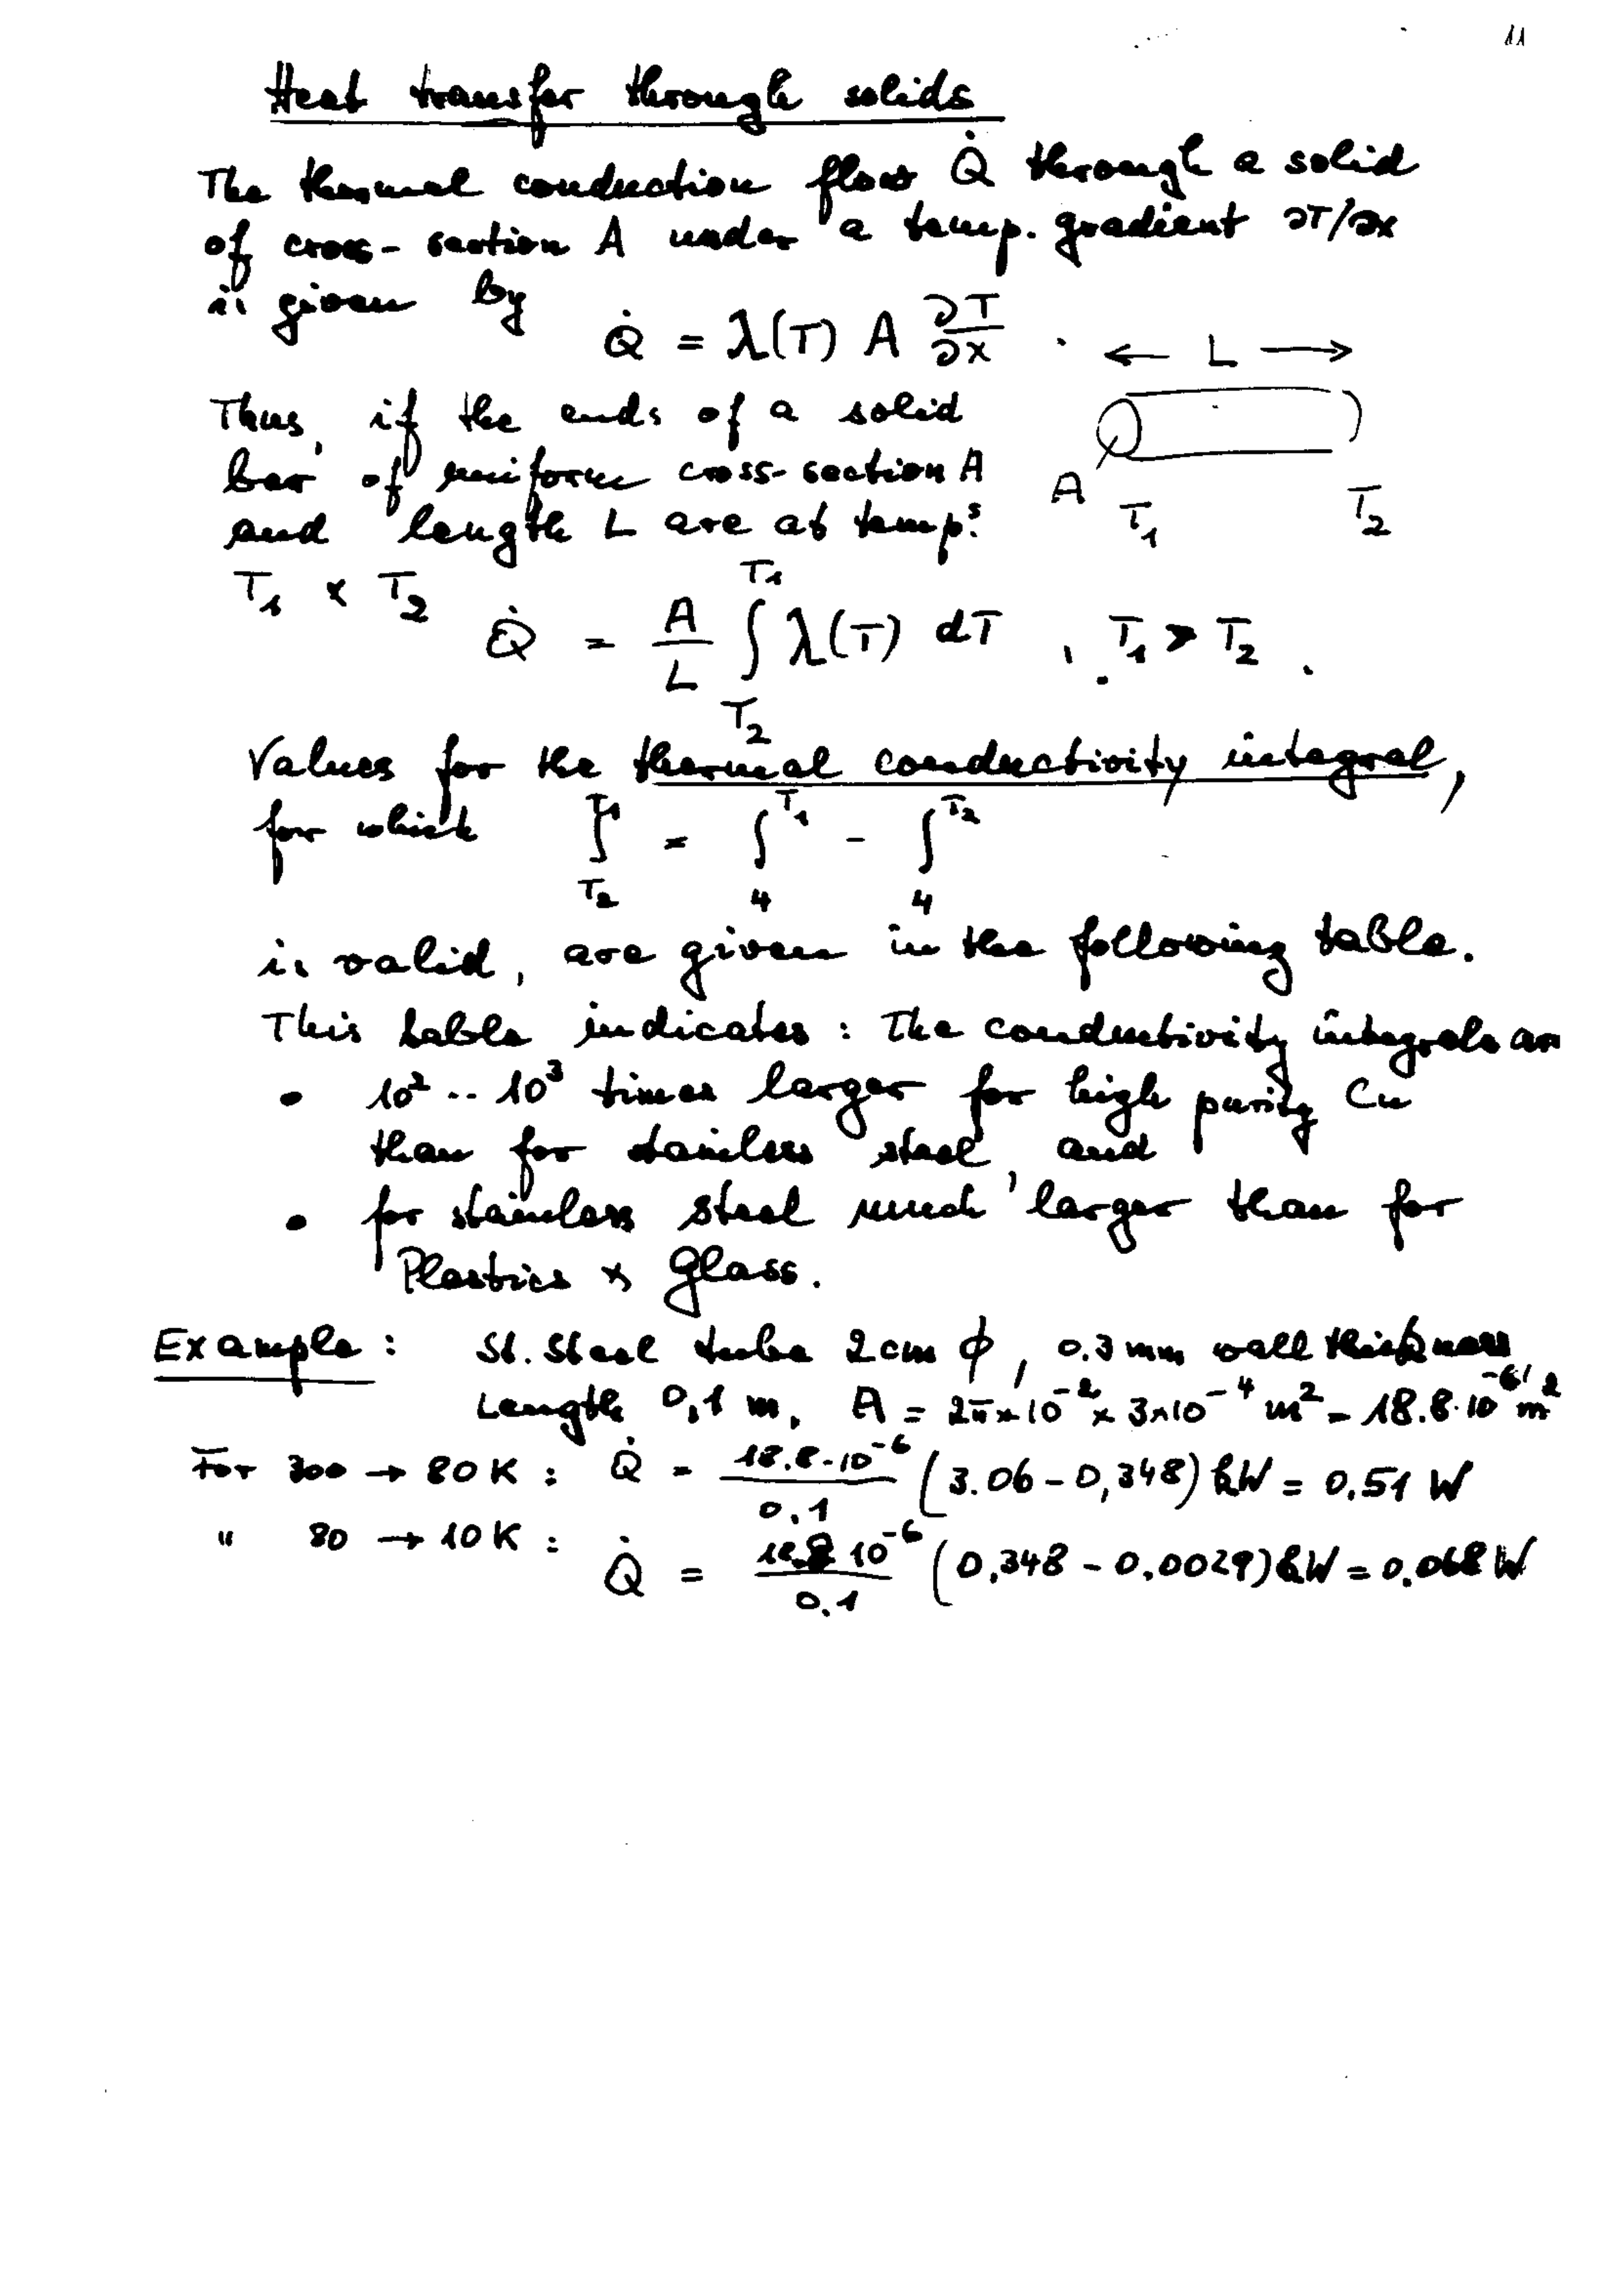 11
Heat transfer through solids
The thermal conduction flow Q̇ through a solid
of cross-section A under a temp. gradient ∂T/∂x
is given by
Q̇ = λ(T) A ∂T/∂x .
← L →
Thus, if the ends of a solid
bar of uniform cross-section A
and length L are at temp.s
A T₁ T₂
T₁ & T₂
Q̇ = A/L ∫_{T₂}^{T₁} λ(T) dT , T₁ > T₂ .
Values for the thermal conductivity integral,
for which ∫_{T₂}^{T₁} = ∫_4^{T₁} - ∫_4^{T₂}
is valid, are given in the following table.
This table indicates : The conductivity integrals are
• 10² .. 10³ times larger for high purity Cu
than for stainless steel, and
• for stainless steel much larger than for
Plastics & Glass.
Example : St. Steel tube 2cm ϕ, 0.3 mm wall thickness
Length 0,1 m, A = 2π×10⁻² × 3×10⁻⁴ m² = 18.8·10⁻⁶ m²
For 300 → 80 K : Q̇ = 18.8·10⁻⁶/0.1 (3.06 - 0,348) kW = 0.51 W
" 80 → 10 K : Q̇ = 18.8 10⁻⁶/0.1 (0,348 - 0.0029) kW = 0.068 W